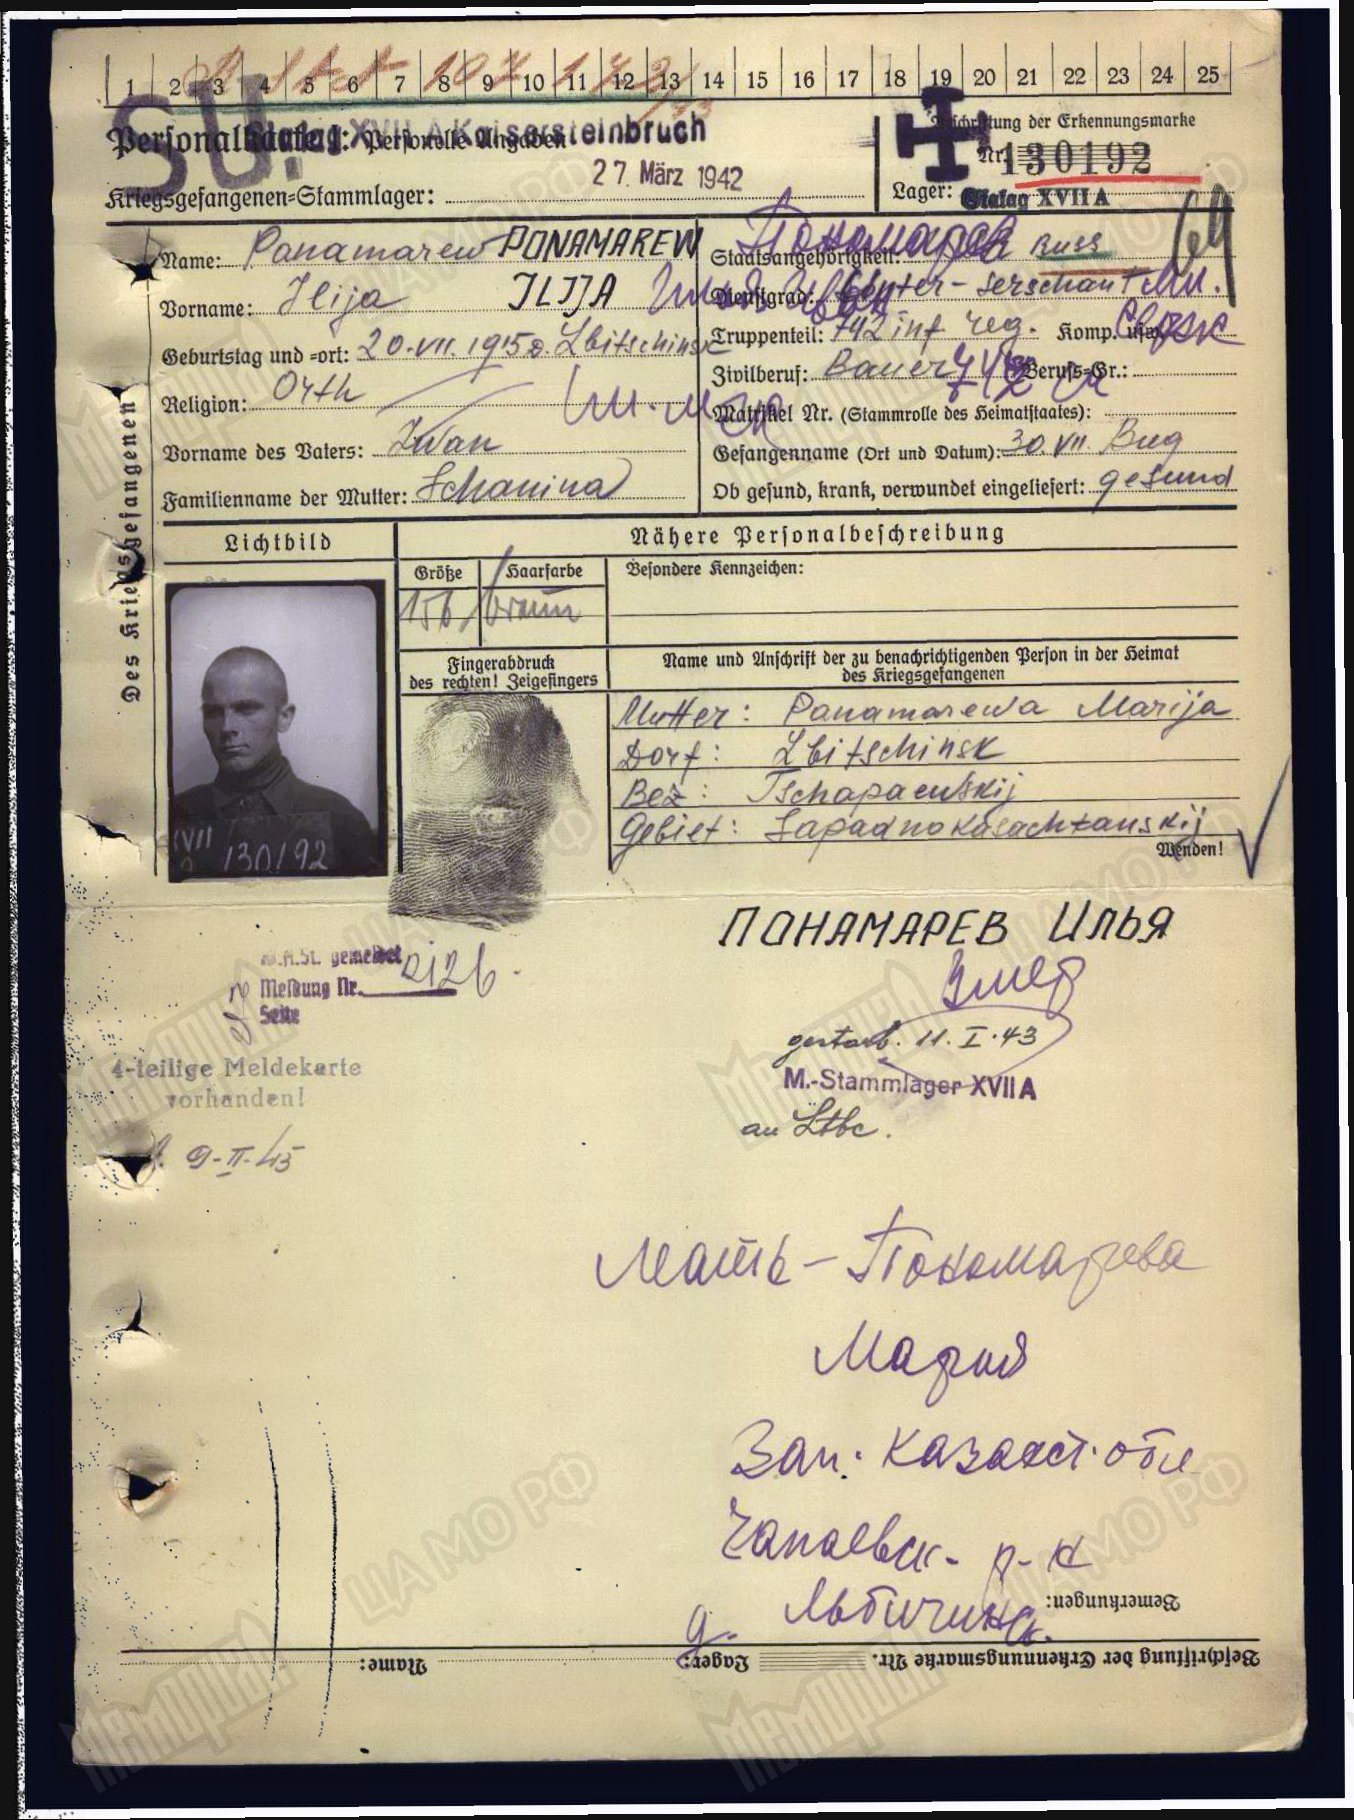 1 2 3 4 5 6 7 8 9 10 11 12 13 14 15 16 17 18 19 20 21 22 23 24 25
SU.
Personalkarte I: Personelle Angaben
Stalag XVII A Kaisersteinbruch
27. März 1942
Kriegsgefangenen-Stammlager:
Beschriftung der Erkennungsmarke
Nr. 130192
Lager: Stalag XVII A
Des Kriegsgefangenen
Name: Panamarew PONAMAREW
Vorname: Ilija ILIJA
Geburtstag und -ort: 20.VII.1915 Lbitschinsk
Religion: Orth
Vorname des Vaters: Iwan
Familienname der Mutter: Schanina
Пономарев
Staatsangehörigkeit: Russ
Dienstgrad: Unter-Serschant
Truppenteil: 742 inf reg. Komp. usw.:
Zivilberuf: Bauer Berufs-Gr.:
Matrikel Nr. (Stammrolle des Heimatstaates):
Gefangennahme (Ort und Datum): 30.VII. Bug
Ob gesund, krank, verwundet eingeliefert: gesund
Lichtbild
Nähere Personalbeschreibung
Größe
Haarfarbe
Besondere Kennzeichen:
156
braun
Fingerabdruck
des rechten! Zeigefingers
Name und Anschrift der zu benachrichtigenden Person in der Heimat
des Kriegsgefangenen
Mutter: Panamarewa Marija
Dorf: Lbitschinsk
Bez: Tschapaewskij
Gebiet: Sapadnokasachtanskij
Wenden!
XVII
A 130192
ПОНАМАРЕВ ИЛЬЯ
Умер
gestorb. 11.I.43
M.-Stammlager XVII A
W.A.St. gemeldet
Meldung Nr. 2126
Seite
4-teilige Meldekarte
vorhanden!
9-II-43
Мать - Пономарева
Мария
Зап. Казахст. обл
Чапаевск- р-н
д. Льбичинск.
Bemerkungen:
Beschriftung der Erkennungsmarke Nr. Lager: Name:
Мемориал
ЦА МО РФ